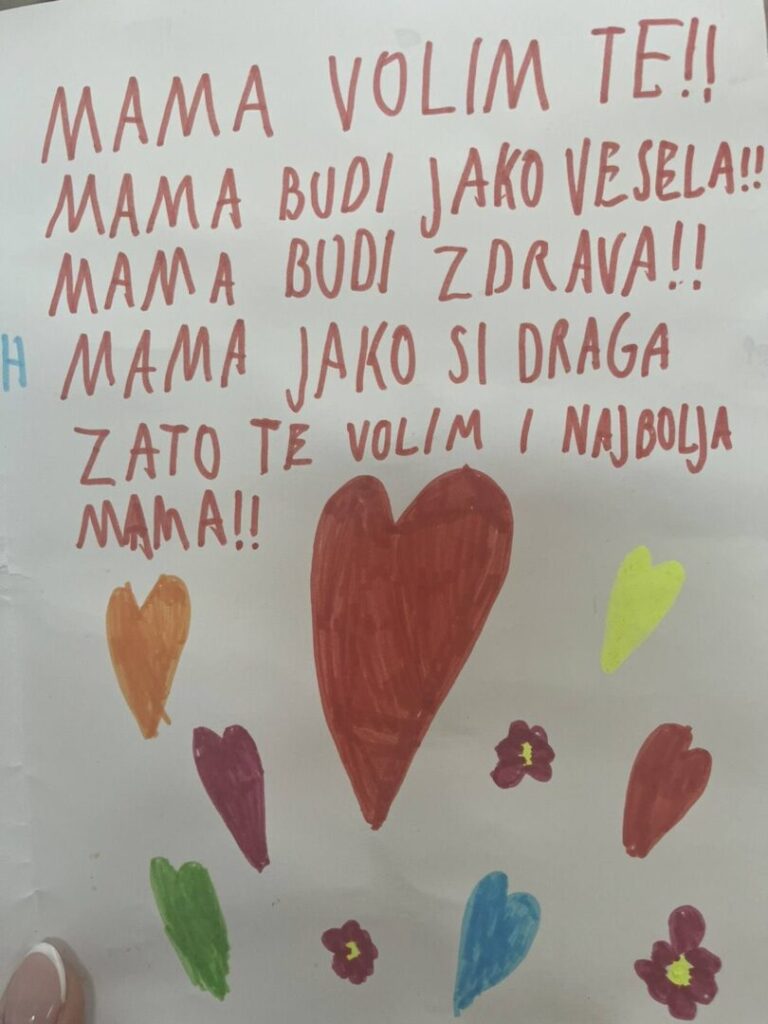 MAMA VOLIM TE!!
MAMA BUDI JAKO VESELA!!
MAMA BUDI ZDRAVA!!
H MAMA JAKO SI DRAGA
ZATO TE VOLIM I NAJBOLJA
MAMA!!